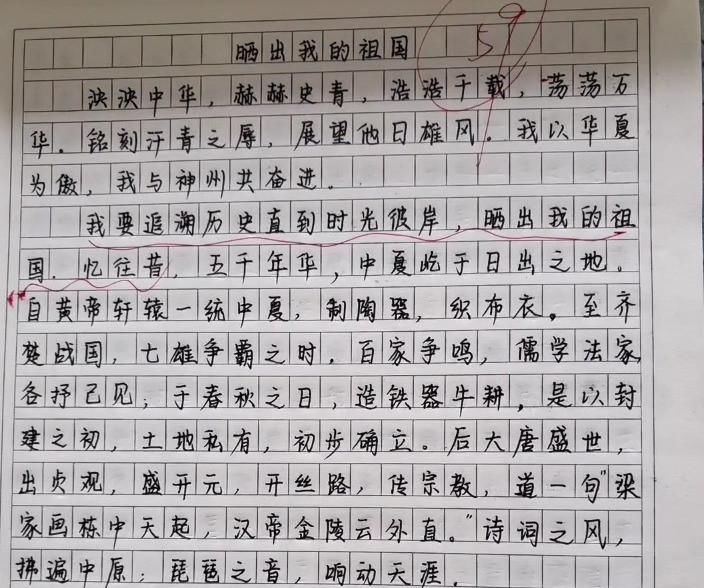 晒出我的祖国 59
泱泱中华，赫赫史青，浩浩千载，荡荡万
华。铭刻汗青之辱，展望他日雄风。我以华夏
为傲，我与神州共奋进。
我要追溯历史直到时光彼岸，晒出我的祖
国。忆往昔，五千年华，中夏屹于日出之地。
自黄帝轩辕一统中夏，制陶器，织布衣。至齐
楚战国，七雄争霸之时，百家争鸣，儒学法家，
各抒己见；于春秋之日，造铁器牛耕，是以封
建之初，土地私有，初步确立。后大唐盛世，
出贞观，盛开元，开丝路，传宗教，道一句“梁
家画栋中天起，汉帝金陵云外直。”诗词之风，
拂遍中原；琵琶之音，响动天涯。